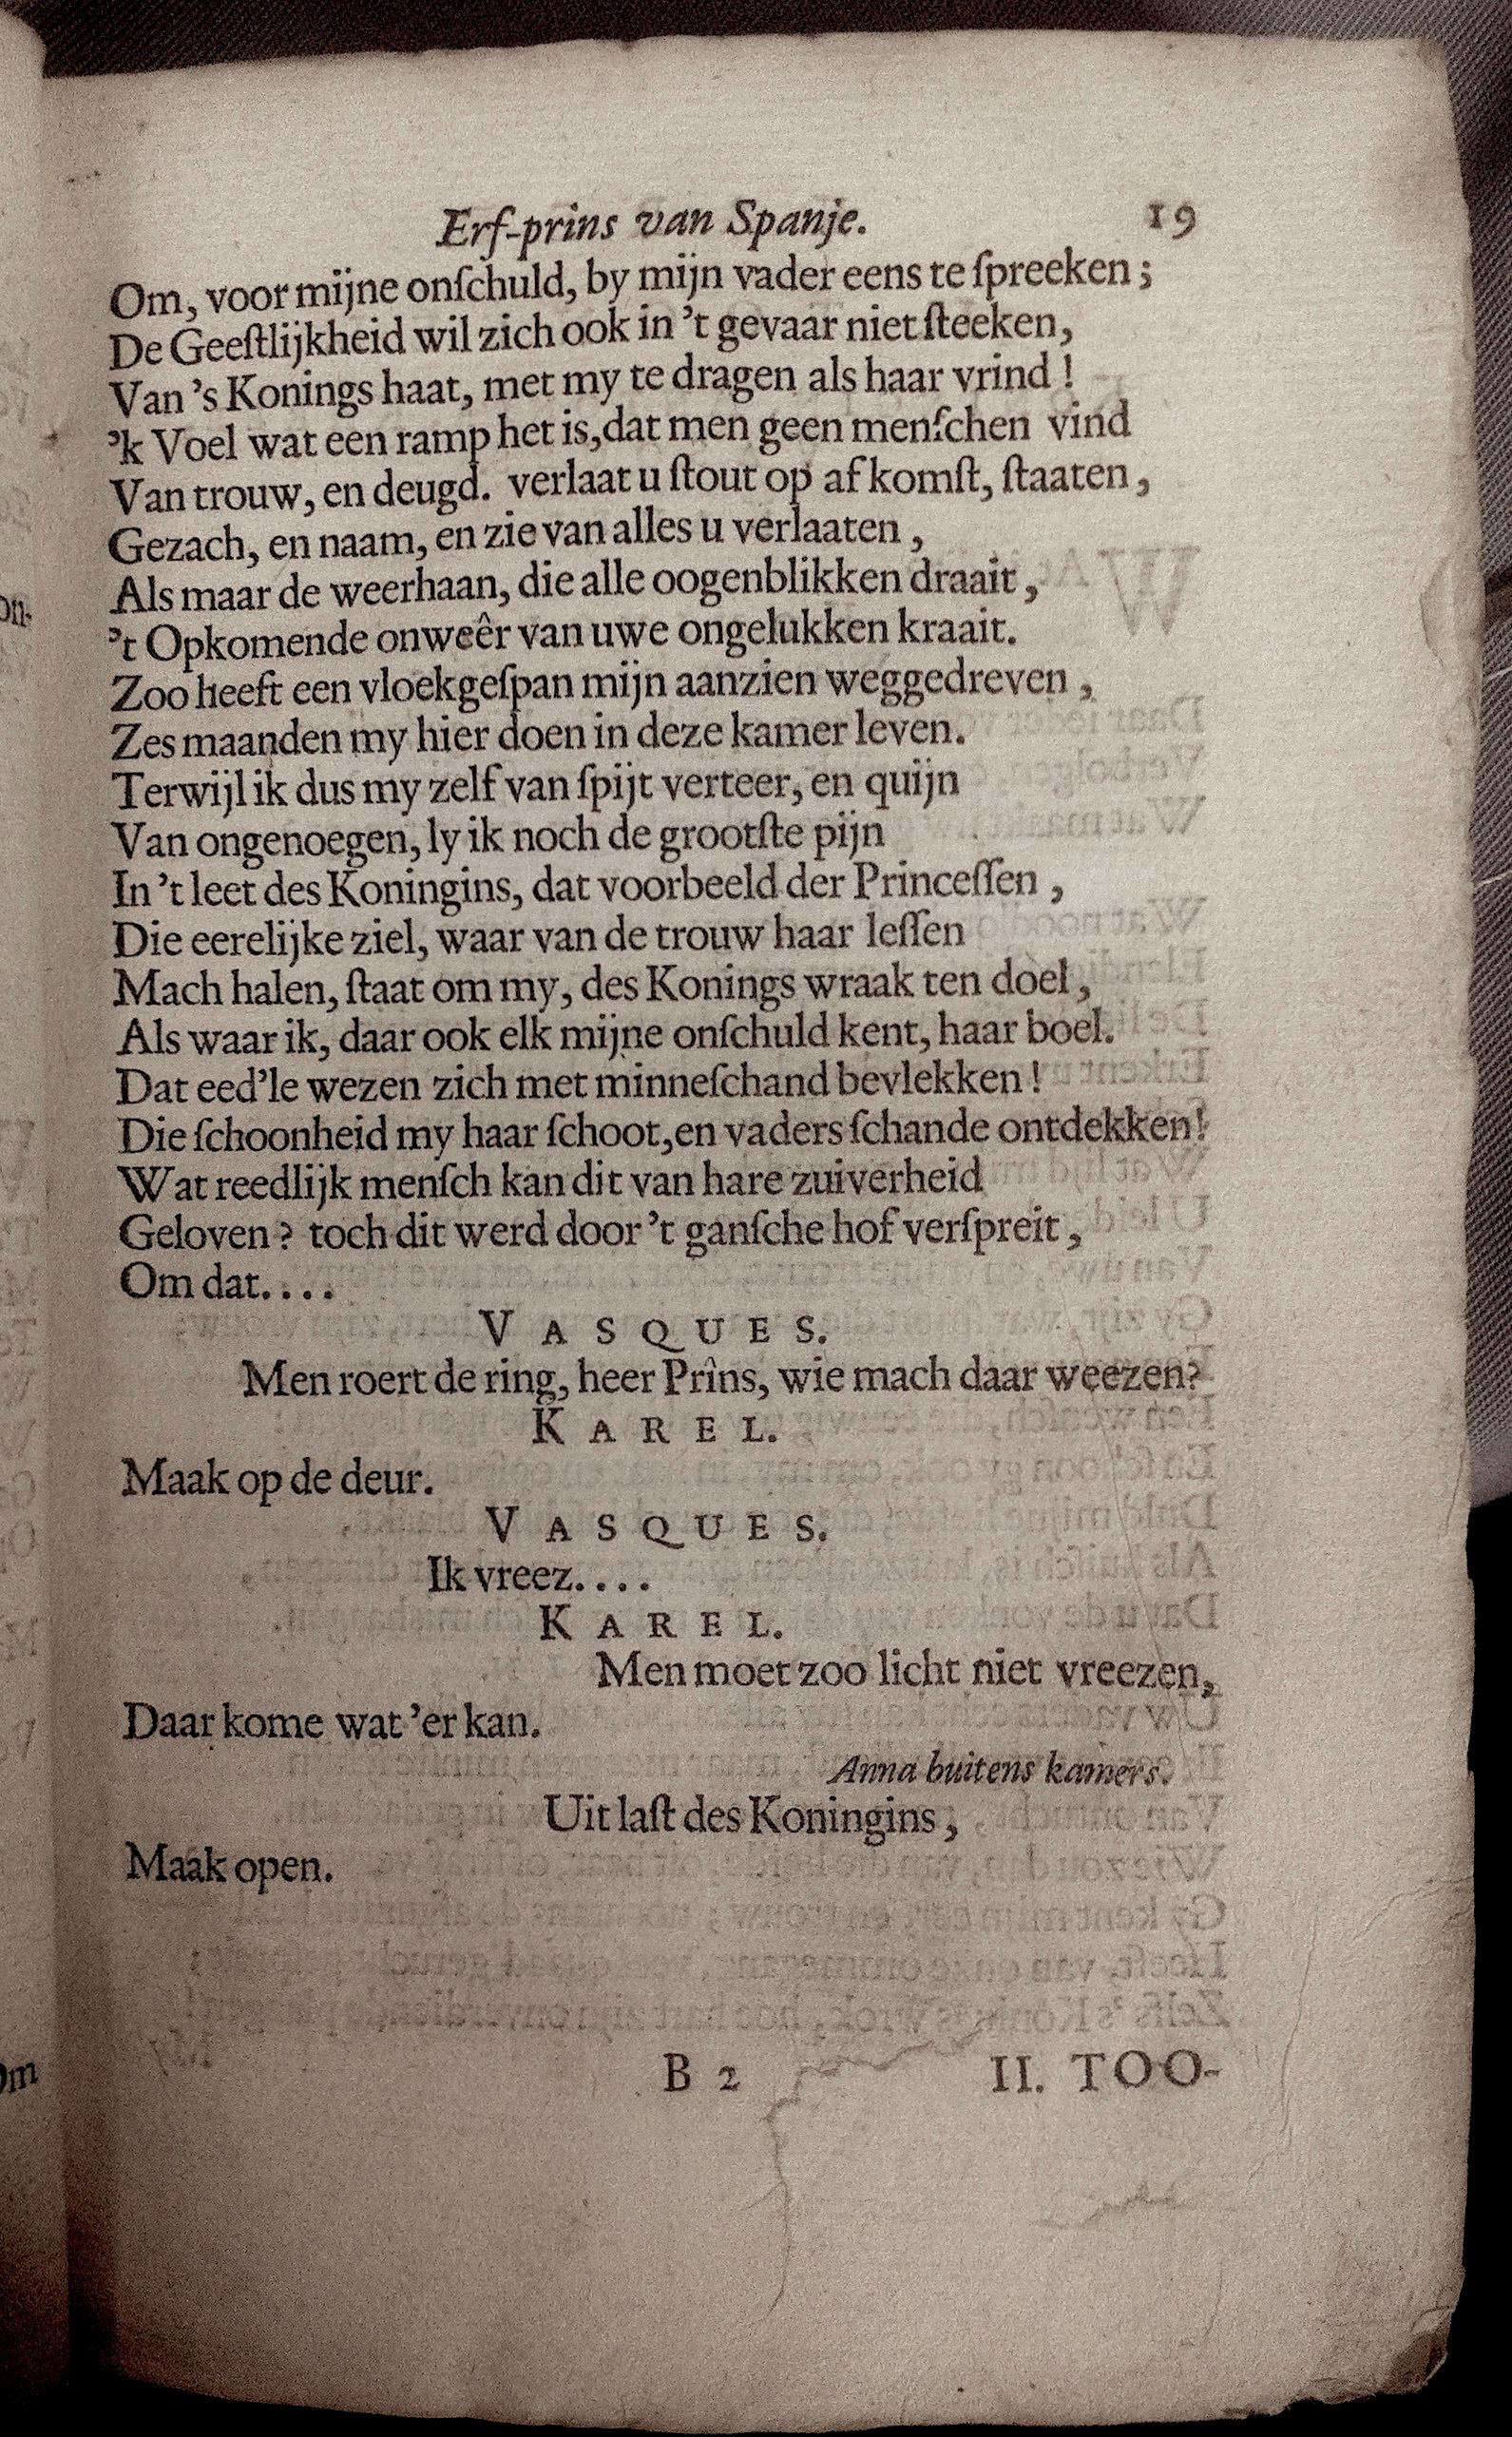 Erf-prins van Spanje. 19
Om, voor mijne onſchuld, by mijn vader eens te ſpreeken;
De Geeſtlijkheid wil zich ook in 't gevaar niet ſteeken,
Van 's Konings haat, met my te dragen als haar vrind!
'k Voel wat een ramp het is, dat men geen menſchen vind
Van trouw, en deugd. verlaat u ſtout op afkomſt, ſtaaten,
Gezach, en naam, en zie van alles u verlaaten,
Als maar de weerhaan, die alle oogenblikken draait,
't Opkomende onweêr van uwe ongelukken kraait.
Zoo heeft een vloekgeſpan mijn aanzien weggedreven,
Zes maanden my hier doen in deze kamer leven.
Terwijl ik dus my zelf van ſpijt verteer, en quijn
Van ongenoegen, ly ik noch de grootſte pijn
In 't leet des Koningins, dat voorbeeld der Princeſſen,
Die eerelijke ziel, waar van de trouw haar leſſen
Mach halen, ſtaat om my, des Konings wraak ten doel,
Als waar ik, daar ook elk mijne onſchuld kent, haar boel.
Dat eed'le wezen zich met minneſchand bevlekken!
Die ſchoonheid my haar ſchoot, en vaders ſchande ontdekken!
Wat reedlijk menſch kan dit van hare zuiverheid
Geloven? toch dit werd door 't ganſche hof verſpreit,
Om dat....
VASQUES.
Men roert de ring, heer Prîns, wie mach daar weezen?
KAREL.
Maak op de deur.
VASQUES.
Ik vreez....
KAREL.
Men moet zoo licht niet vreezen,
Daar kome wat 'er kan.
Anna buitens kamers.
Uit laſt des Koningins,
Maak open.
B 2 II. TOO-